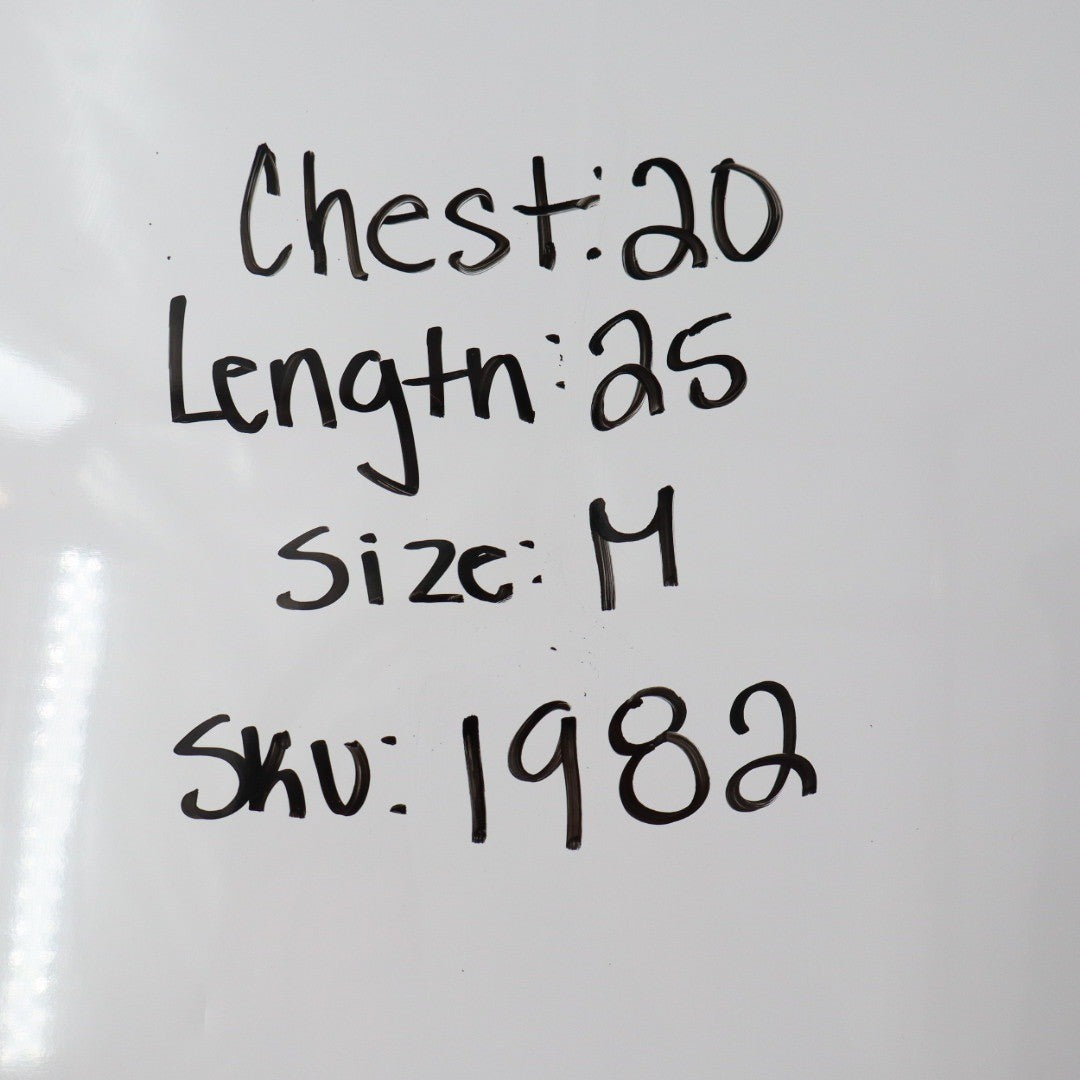 Chest: 20
Length: 25
Size: M
SKU: 1982